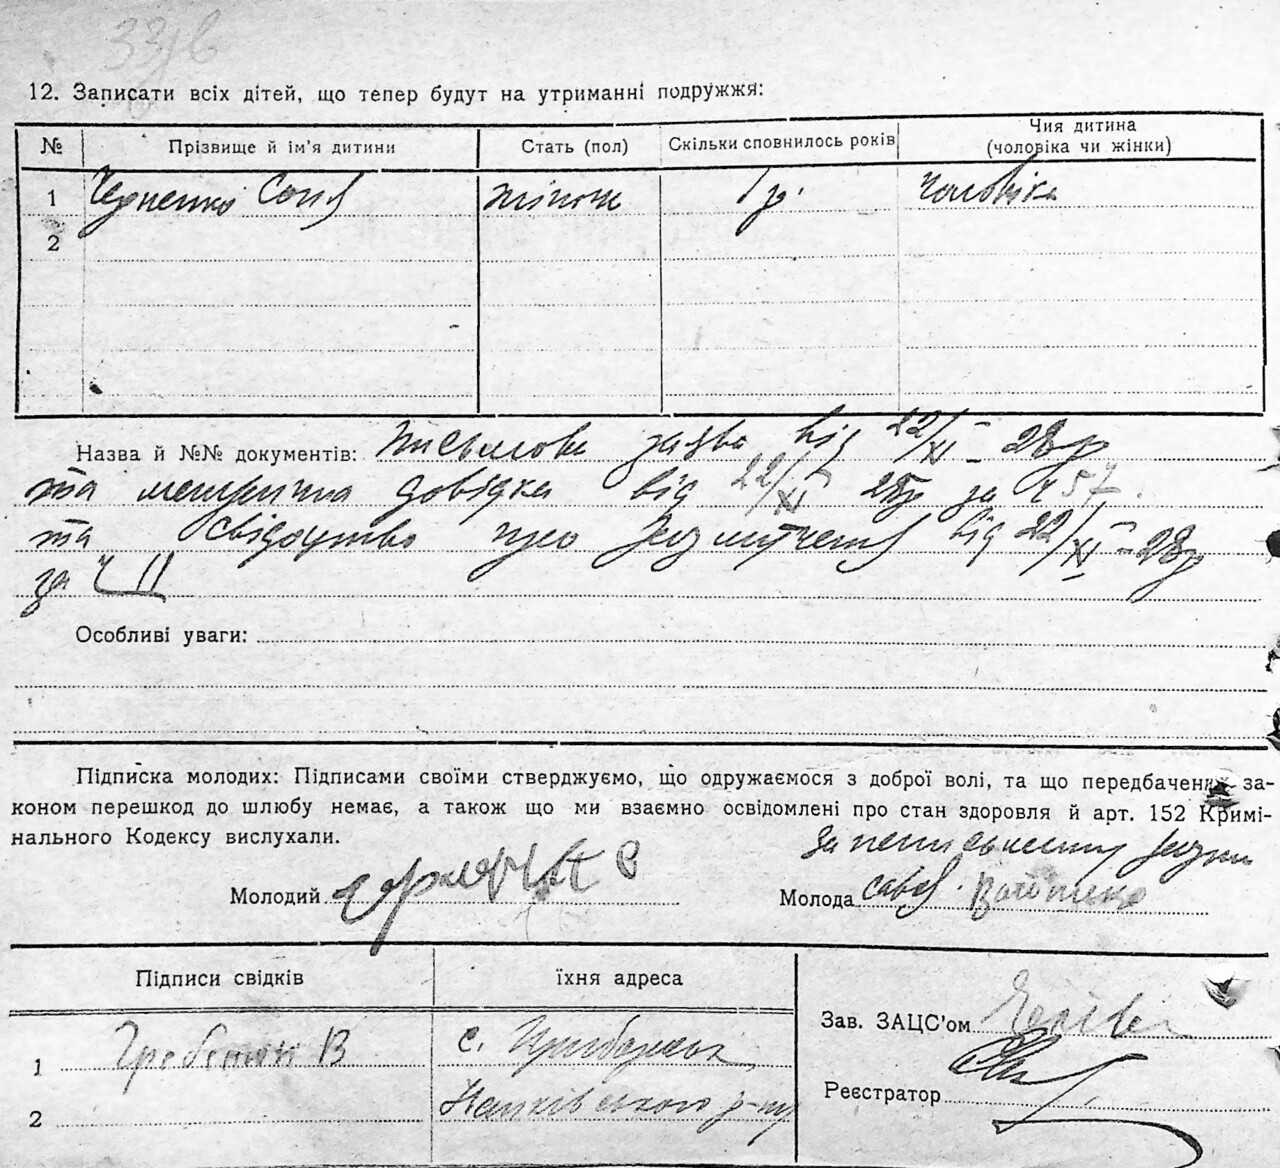 12. Записати всіх дітей, що тепер будут на утриманні подружжя:
№ Прізвище й ім'я дитини Стать (пол) Скільки сповнилось років Чия дитина (чоловіка чи жінки)
1 Черненко Соня жіноч 1 р. чоловіка
2
Назва й №№ документів: письмова заява від 22/XI – 28р
та метрична довідка від 22/XI 28р за ч 57.
та свідоцтво про від 22/XI – 28р
за ч 11
Особливі уваги:
Підписка молодих: Підписами своїми стверджуємо, що одружаємося з доброї волі, та що передбачених за-
коном перешкод до шлюбу немає, а також що ми взаємно освідомлені про стан здоровля й арт. 152 Кримі-
нального Кодексу вислухали.
За неписьменну
Молодий Молода
Підписи свідків їхня адреса
Зав. ЗАЦС'ом
1 В с.
Реєстратор
2 р-ну